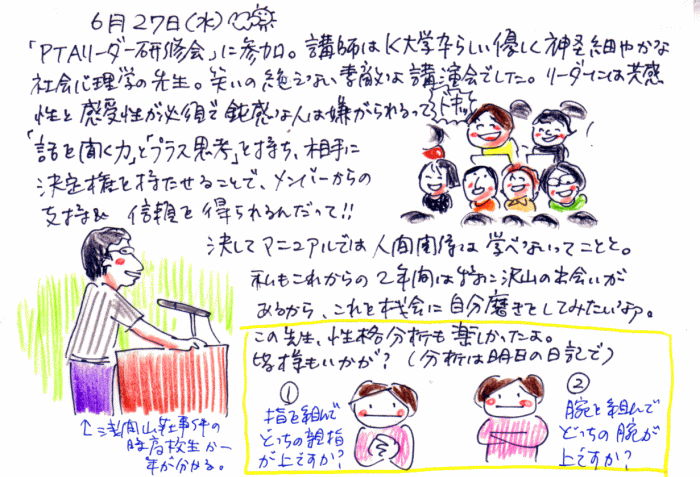 6月27日(水)
「PTAリーダー研修会」に参加。講師はK大学卒らしい優しく神経細やかな
社会心理学の先生。笑いの絶えない素敵な講演会でした。リーダーには共感
性と感受性が必須で鈍感な人は嫌がられるって
ドキッ
「話を聞く力」と「プラス思考」を持ち、相手に
決定権を持たせることで、メンバーからの
支持& 信頼を得られるんだって!!
決してマニュアルでは人間関係は学べないってことと。
私もこれからの2年間は特に沢山の出会いが
あるから、これを機会に自分磨きをしてみたいなァ。
この先生、性格分析も楽しかったよ。
皆様もいかが?(分析は明日の日記で)
①
指を組んで
どっちの親指
が上ですか?
②
腕を組んで
どっちの腕が
上ですか?
↑浅間山荘事件の
時高校生か一
年が分かる。